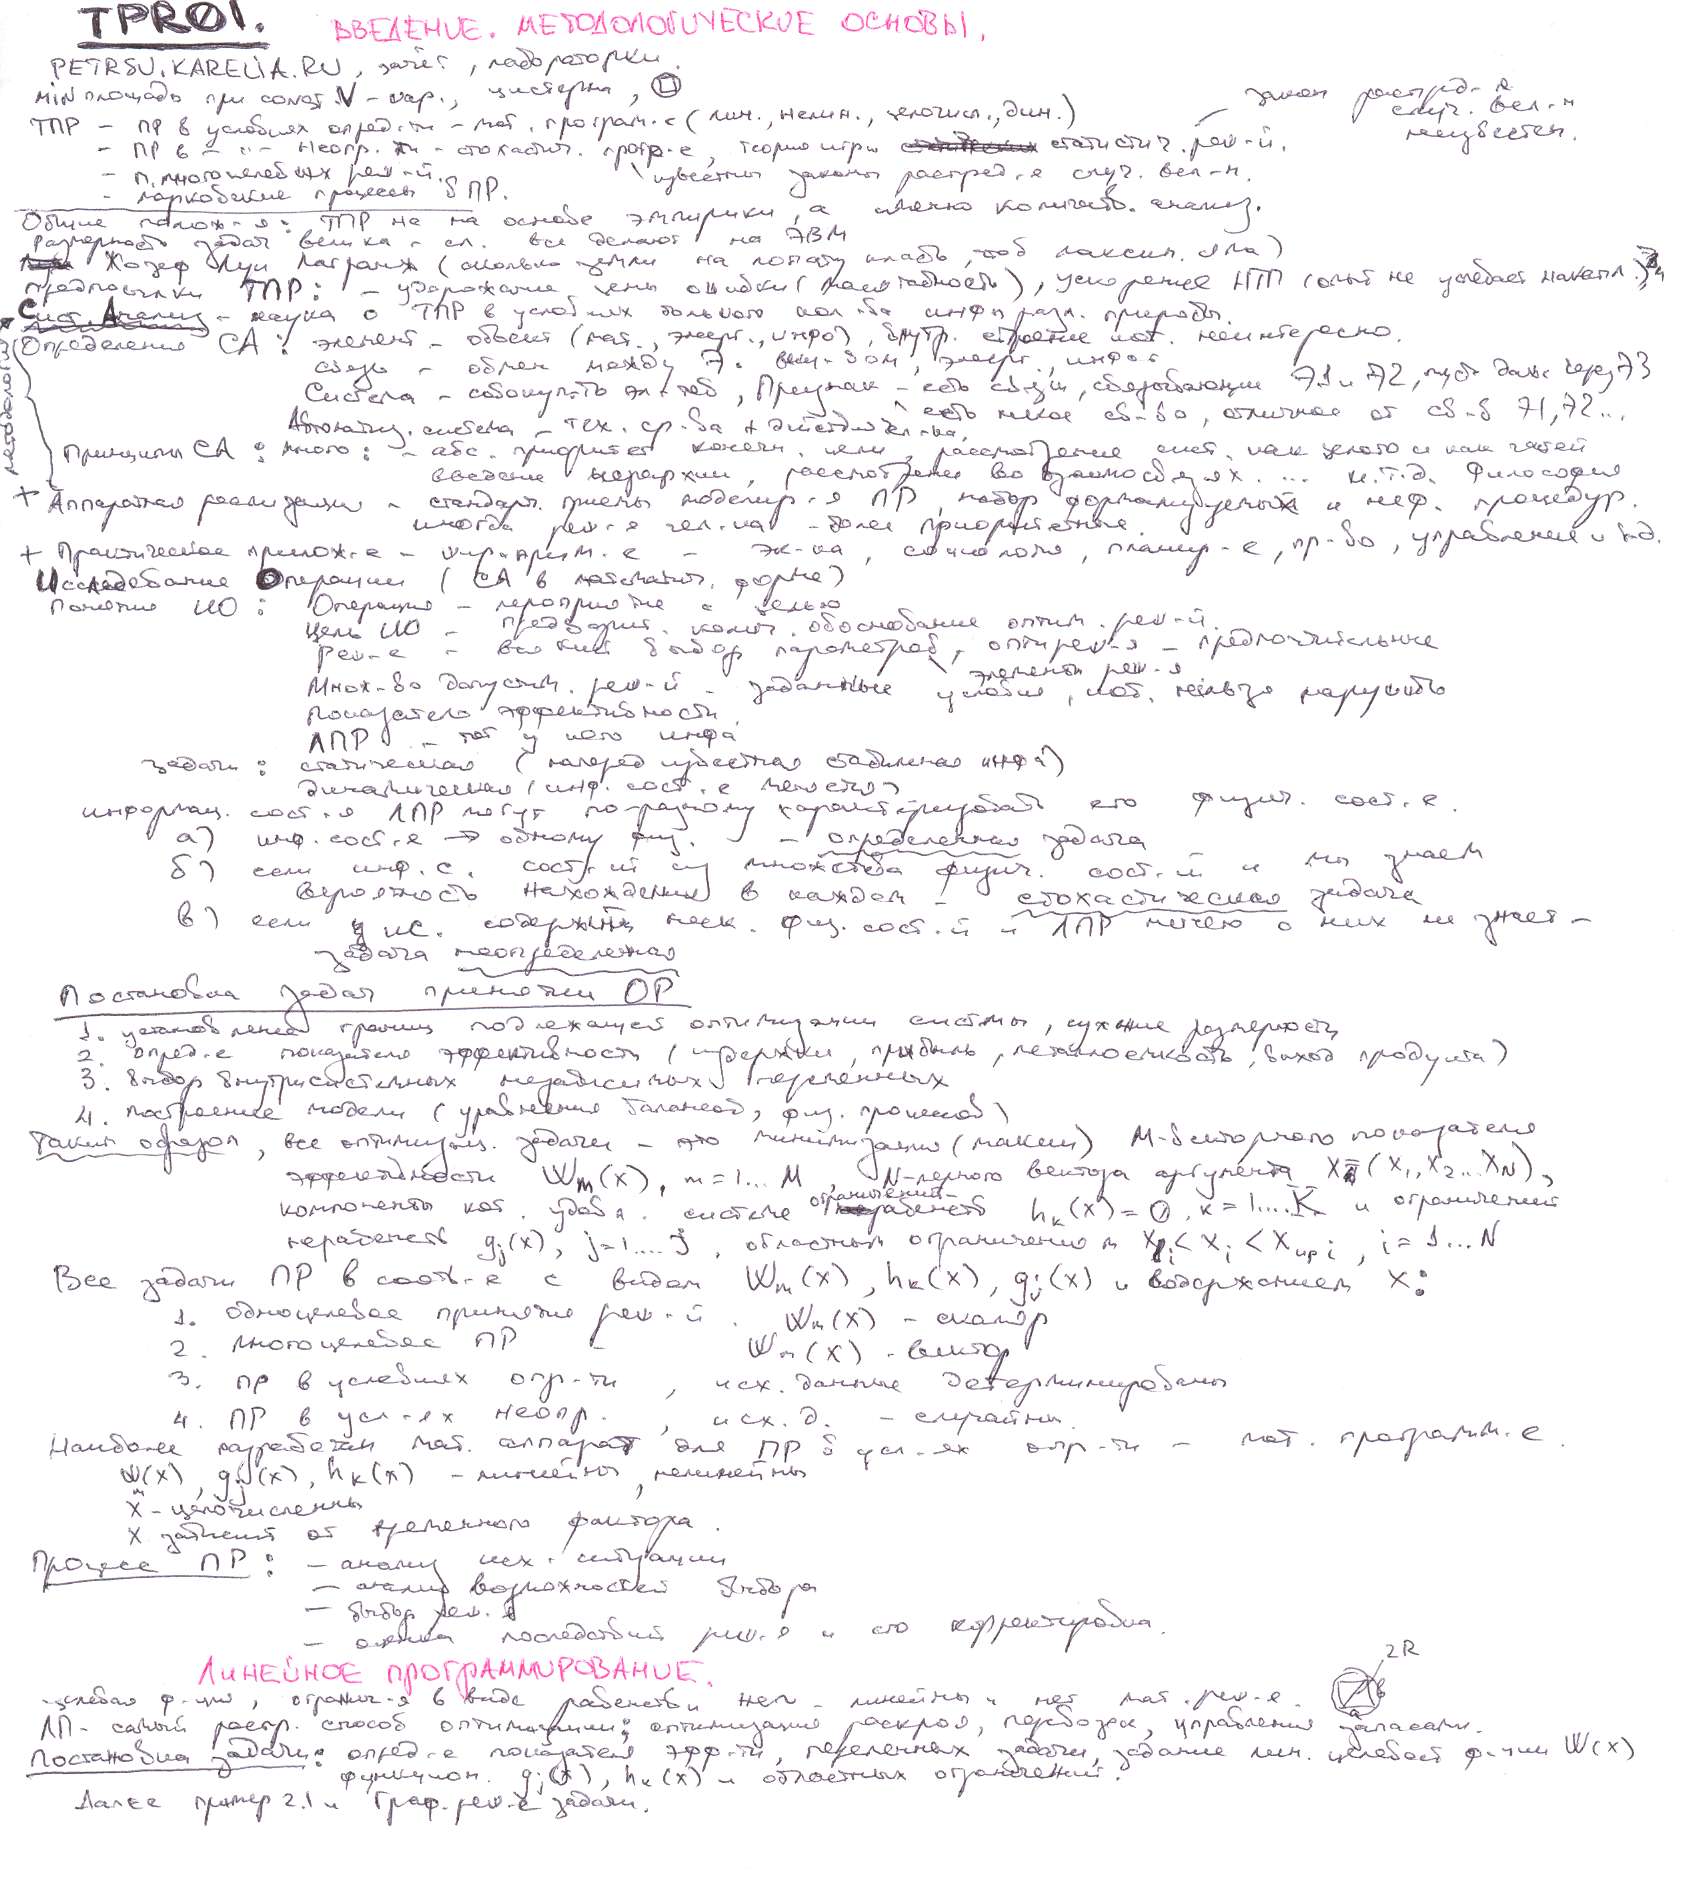 TPR01. ВВЕДЕНИЕ. МЕТОДОЛОГИЧЕСКИЕ ОСНОВЫ.
PETRSU.KARELIA.RU, зачёт, лабораторки.
MIN площадь при const V - вар., цистерна,
закон распред-я
случ. вел-н
неизвестен.
ТПР - ПР в условиях опред-ти - мат. програм-е (лин., нелин., целочисл., дин.)
- ПР в - " - неопр-ти - стохастич. прогр-е, теория игры статистич. реш-й.
- п. многоцелевых реш-й. известны законы распред-я случ. вел-н.
- марковские процессы в ПР.
Общие полож-я: ТПР не на основе эмпирики, а именно количеств. анализ.
Размерность задач велика - сл. все делают на ЭВМ
Жозеф Луи Лагранж (сколько земли на лопату класть, чтоб максим. )
Предпосылки ТПР: - удорожание цены ошибки (масштабность), ускорение НТП (опыт не успевает накапл.)
Сист. Анализ - наука о ТПР в условиях большого кол-ва инфы разл. природы.
методология
Определения СА: элемент - объект (мат., энерг., инфо), внутр. строение кот. неинтересно.
связь - обмен между Э. вещ-вом, энерг., инфой
Система - совокупность эл-тов, Признак - есть связи, связывающие Э1 и Э2, пусть даже через Э3
есть некое св-во, отличное от св-в Э1, Э2...
Автоматиз. система - тех. ср-ва + действия чел-ка.
Принципы СА: много: - абс. приоритет конечн. цели, рассмотрение сист. как целого и как частей
введение иерархии, рассмотрение во взаимосвязях. ... и.т.д. Философия
+ Аппаратная реализация - стандарт. приемы моделир-я ПР, набор формализуемых и неф. процедур.
иногда реш-я чел-ка - более приоритетные.
+ Практическое прилож-е - - эк-ка, социология, планир-е, пр-во, управление и т.д.
Исследование Операции (СА в математич. форме)
Понятие ИО: Операция - мероприятие с целью
Цель ИО - предварит. колич. обоснование оптим. реш-й.
Реш-е - всякий выбор параметров, опт. реш-я - предпочтительные
элементы реш-я
Множ-во допустим. реш-й - заданные условия, кот. нельзя нарушить
Показатель эффективности.
ЛПР - тот у кого инфа
Задачи: статическая (наперед известная стабильная инфа)
динамическая (инф. сост-е меняется)
информац. сост-я ЛПР могут по-разному характеризовать его физич. сост-е.
а) инф. сост-е → одному физ. - определенная задача
б) если инф. с. сост-ит из множества физич. сост-й и мы знаем
вероятность нахождения в каждом - стохастическая задача
в) если ис. содержит неск. физ. сост-й и ЛПР ничего о них не знает -
задача неопределенная
Постановка задач принятия ОР
1. установление границ подлежащей оптимизации системы, сужение размерности
2. опред-е показателя эффективности (издержки, прибыль, металлоемкость, выход продукта)
3. выбор внутрисистемных независимых переменных
4. построение модели (уравнения балансов, физ. процессов)
Таким образом, все оптимизац. задачи - это минимизация (максим) М-векторного показателя
эффективности Wm(x), m=1...M, N-мерного вектора аргумента X=(X1, X2...XN),
компоненты кот. удовл. системе ограничений-равенств hk(x)=0, k=1...K и ограничений
неравенств gj(x), j=1...J, областным ограничениям Xli < Xi < Xupi, i=1...N
Все задачи ПР в соотв-е с видом Wm(x), hk(x), gj(x) и содержанием X:
1. одноцелевое принятие реш-й. Wm(x) - скаляр
2. многоцелевое ПР - Wm(x) - вектор
3. ПР в условиях опр-ти, исх. данные детерминированы
4. ПР в усл-ях неопр., исх. д. - случайны.
Наиболее разработан мат. аппарат для ПР в усл-ях опр-ти - мат. программ-е.
Wm(x), gj(x), hk(x) - линейны, нелинейны
X - целочисленны
X зависит от временного фактора.
Процесс ПР: - анализ исх. ситуации
- анализ возможностей выбора
- выбор реш-я
- оценка последствий реш-я и его корректировка.
ЛИНЕЙНОЕ ПРОГРАММИРОВАНИЕ.
2R
в
а
целевая ф-ция, огранич-я в виде равенств и нер - линейны и нет мат. реш-е.
ЛП - самый распр. способ оптимизации: оптимизация раскроя, перевозок, управления запасами.
Постановка задачи: опред-е показателя эфф-ти, переменных задачи, задание лин. целевой ф-ции W(x)
функцион. gj(x), hk(x) и областных ограничений.
Далее пример 2.1 и Граф. реш-е задачи.